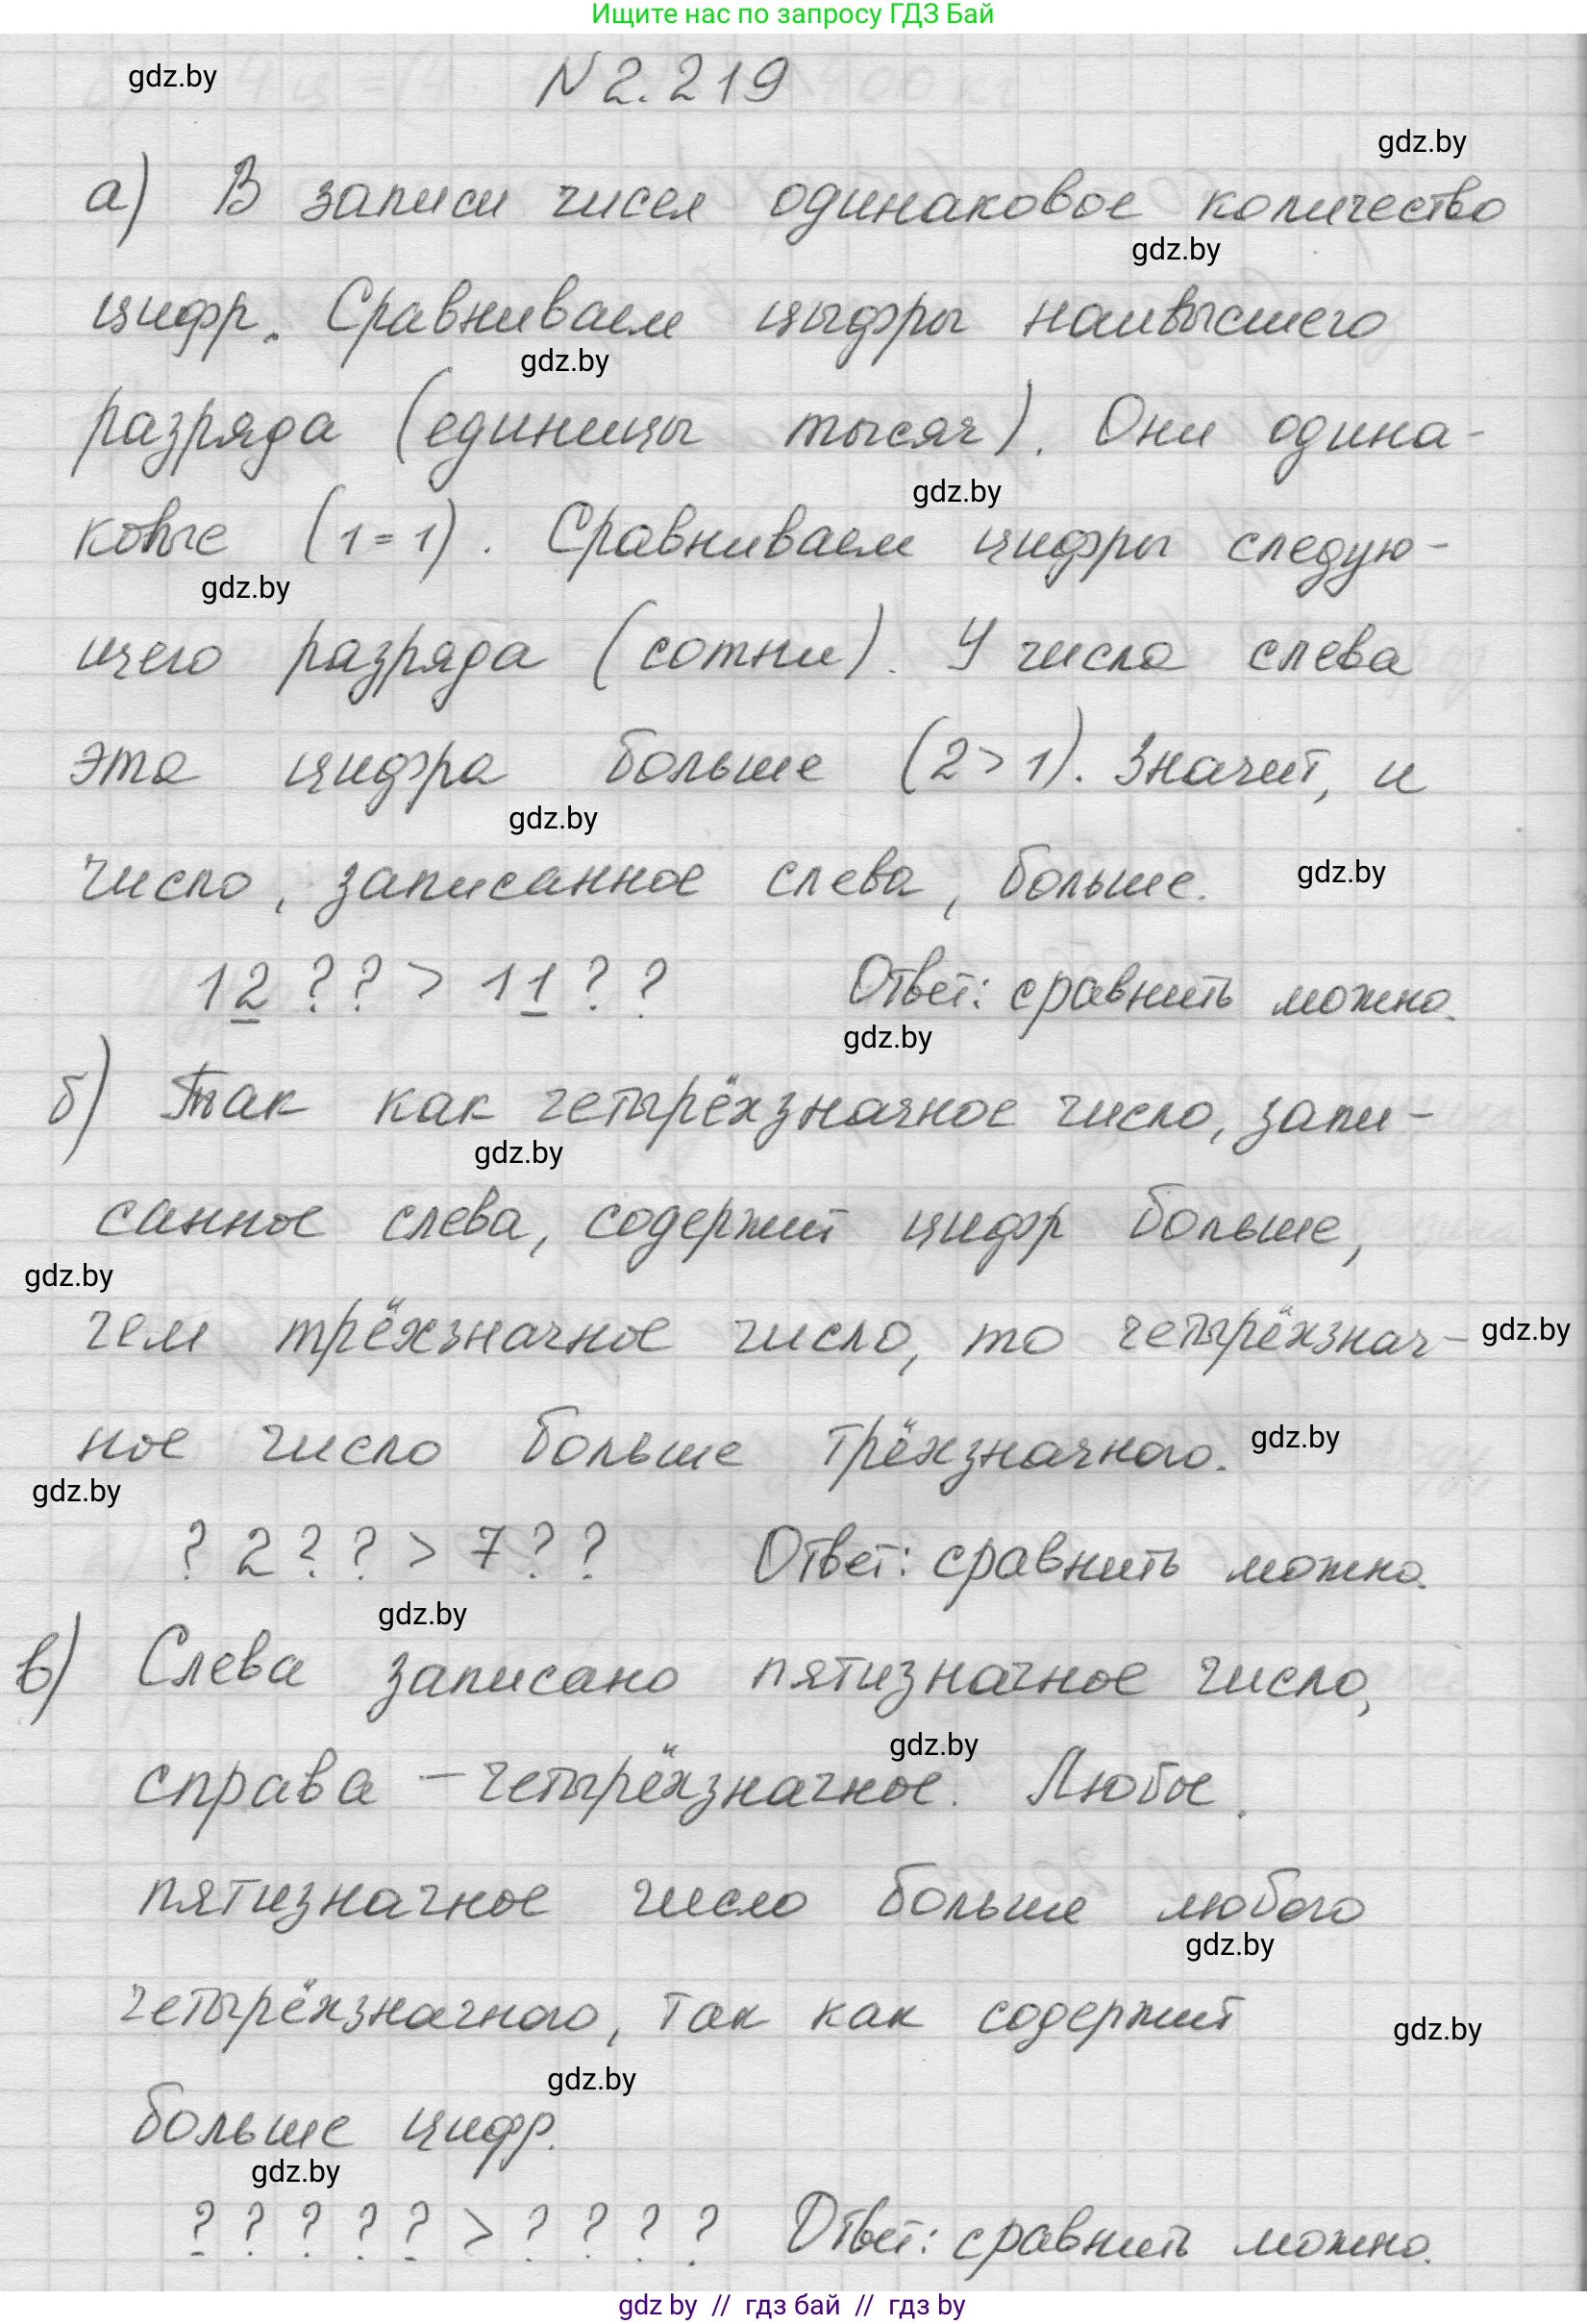 Ищите нас по запросу ГДЗ Бай
gdz.by
N 2.219
gdz.by
а) В записи чисел одинаковое количество
gdz.by
цифр. Сравниваем цыфры наивысшего
gdz.by
разряда (единицы тысяч). Они одина-
gdz.by
ковые (1=1). Сравниваем цифры следую-
gdz.by
щего разряда (сотни). У числа слева
эта цифра больше (2>1). Значит, и
gdz.by
число, записанное слева, больше.
gdz.by
12?? > 11?? Ответ: сравнить можно.
gdz.by
б) Так как четырёхзначное число, запи-
gdz.by
санное слева, содержит цифр больше,
gdz.by
чем трёхзначное число, то четырёхзнач-
gdz.by
ное число больше трёхзначного.
gdz.by
gdz.by
?2?? > 7?? Ответ: сравнить можно.
gdz.by
в) Слева записано пятизначное число,
gdz.by
справа – четырёхзначное. Любое
пятизначное число больше любого
gdz.by
четырёхзначного, так как содержит
gdz.by
gdz.by
больше цифр.
gdz.by
????? > ???? Ответ: сравнить можно.
gdz by // гдз бай // гдз by